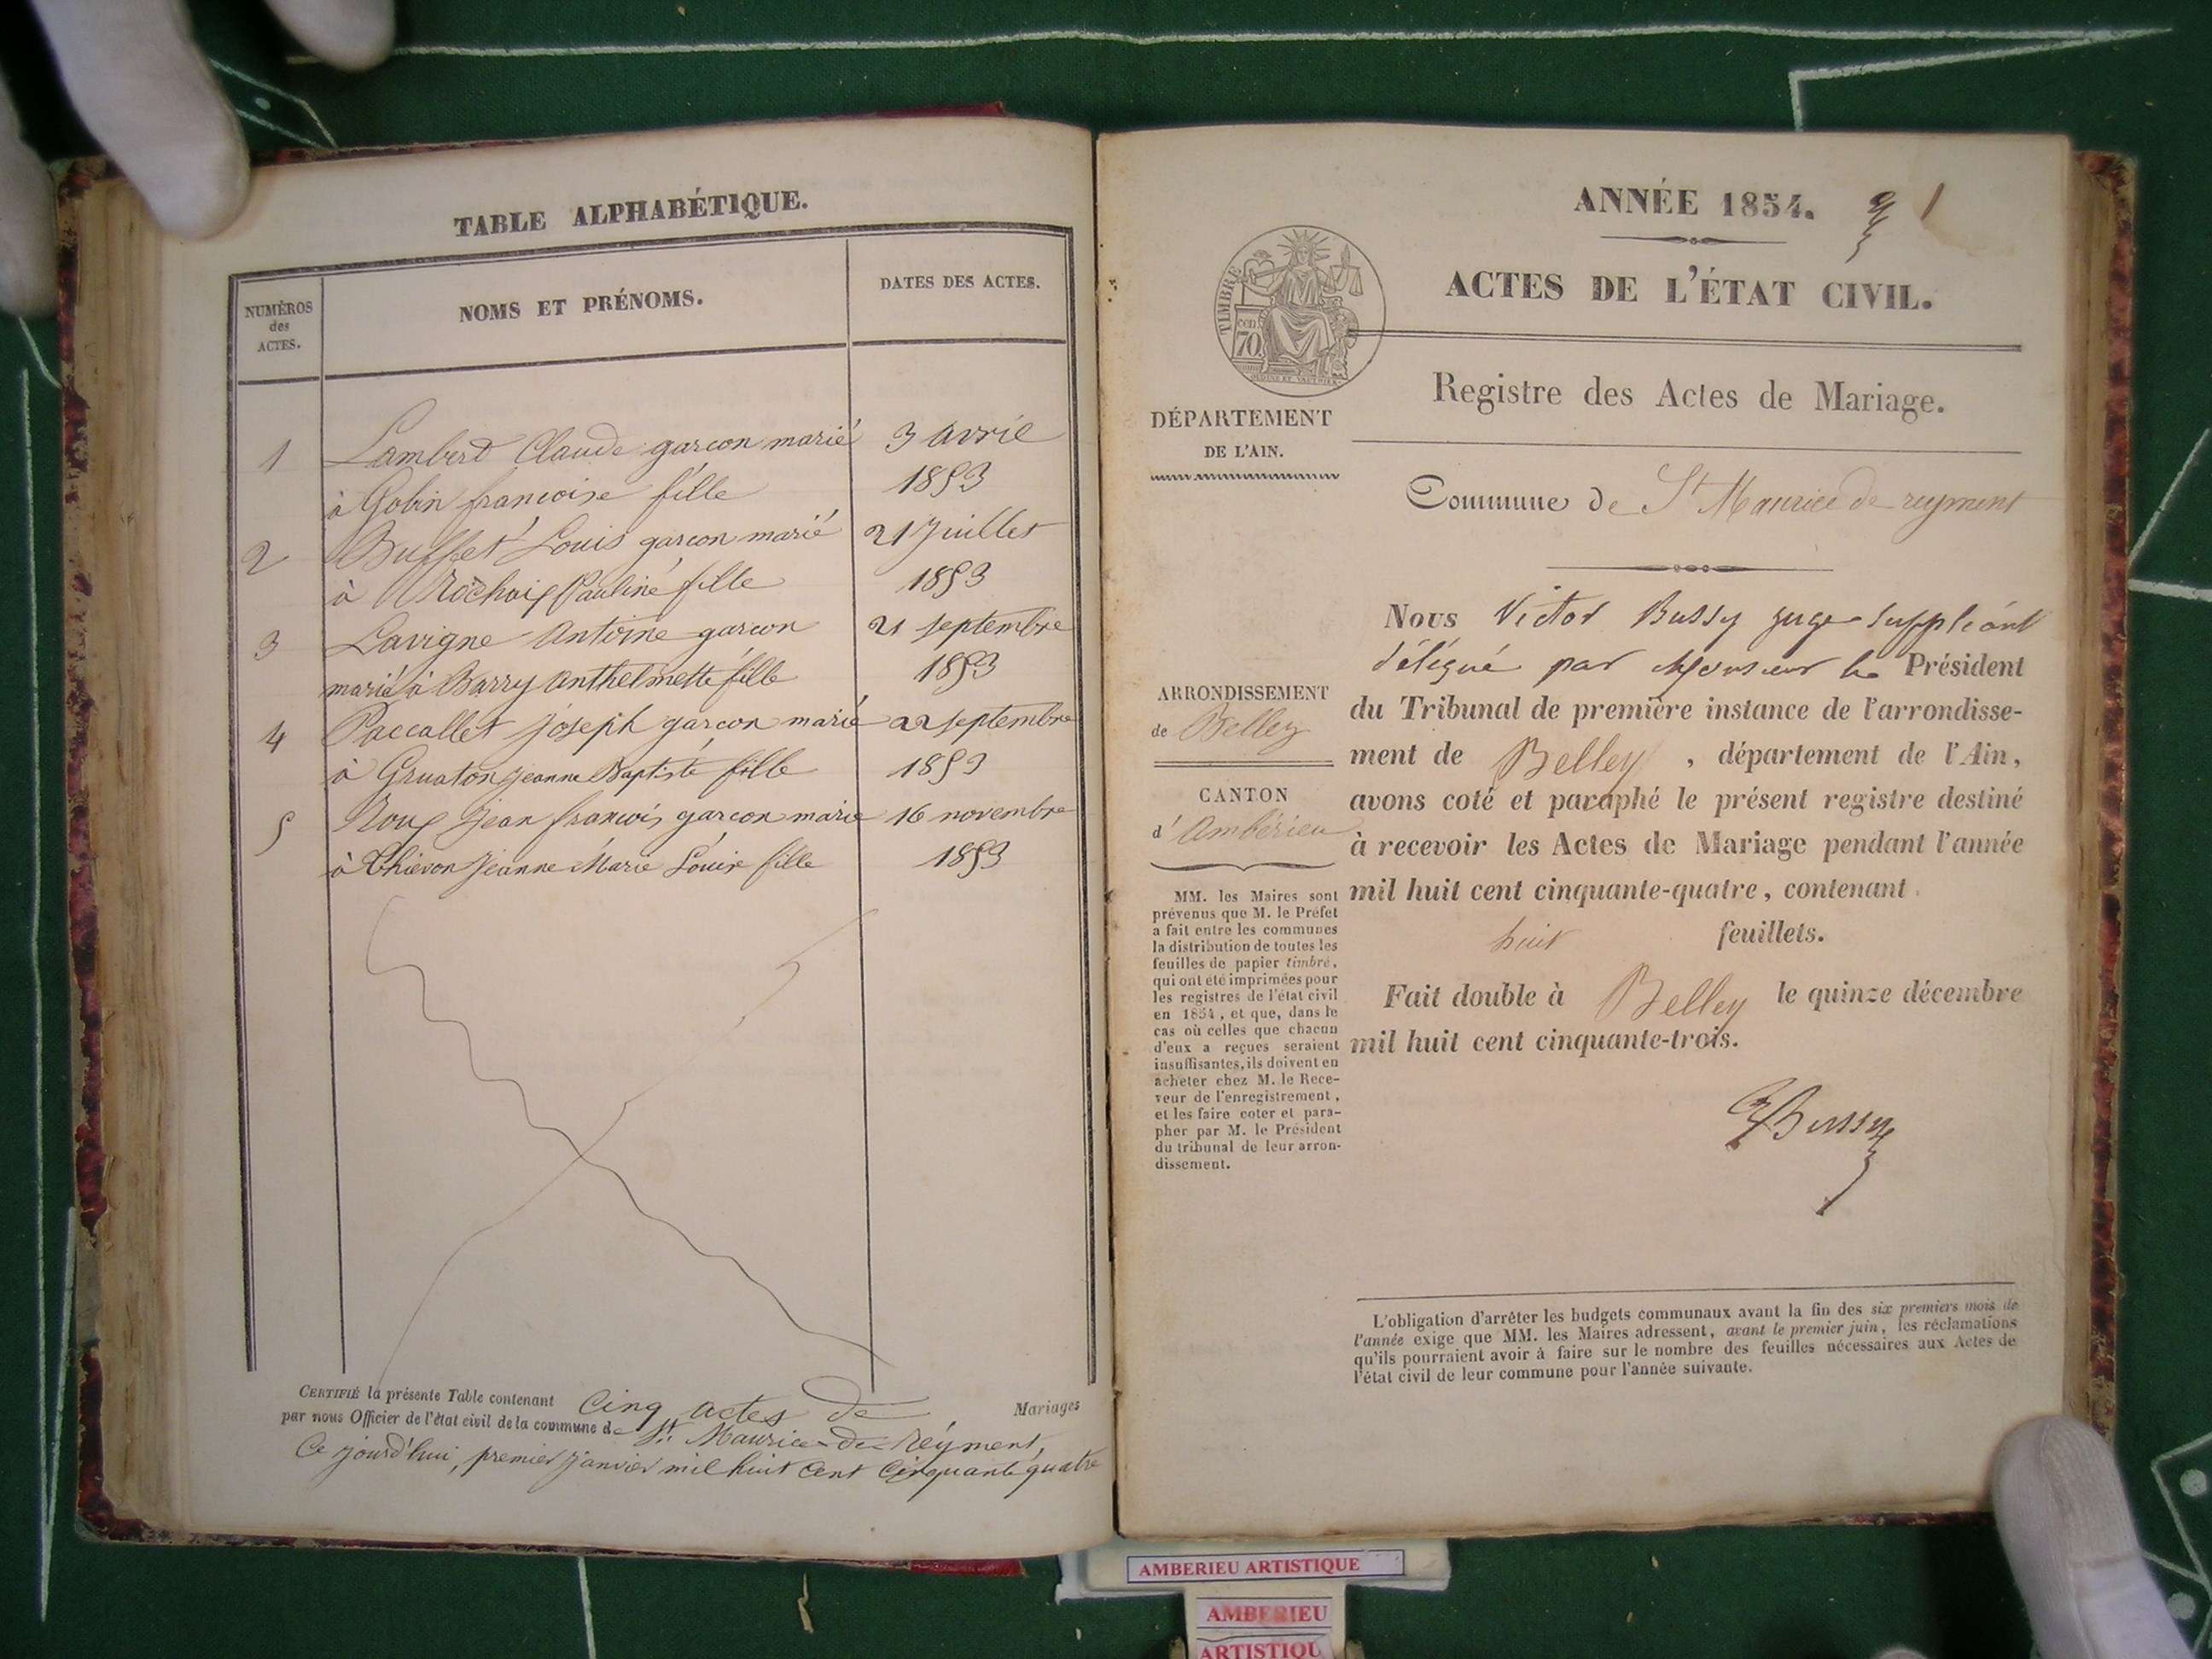 TABLE ALPHABÉTIQUE.
NUMÉROS
des
ACTES.
NOMS ET PRÉNOMS.
DATES DES ACTES.
1 Lambert Claude garcon marié 3 avril
à Gobin francoise fille 1853
2 Buffet Louis garcon marié 21 Juillet
à Rochaix Pauline fille 1853
3 Lavigne Antoine garcon 21 septembre
marié à Barry Anthelmette fille 1853
4 Paccallet Joseph garcon marié 22 septembre
à Gruaton Jeanne Baptiste fille 1853
5 Roux Jean francois garcon marié 16 novembre
à Thievon Jeanne Marie Louise fille 1853
CERTIFIÉ la présente Table contenant Cinq actes de Mariages
par nous Officier de l'état civil de la commune de St. Maurice de Réyment,
Ce jourd'hui, premier janvier mil huit cent Cinquante quatre
ANNÉE 1854. 1
ACTES DE L'ÉTAT CIVIL.
TIMBRE
cen.
70
Registre des Actes de Mariage.
DÉPARTEMENT
DE L'AIN.
Commune de St Maurice de reyment
ARRONDISSEMENT
de Belley
CANTON
d'Ambérieu
MM. les Maires sont
prévenus que M. le Préfet
a fait entre les communes
la distribution de toutes les
feuilles de papier timbré,
qui ont été imprimées pour
les registres de l'état civil
en 1854, et que, dans le
cas où celles que chacun
d'eux a reçues seraient
insuffisantes, ils doivent en
acheter chez M. le Rece-
veur de l'enregistrement,
et les faire coter et para-
pher par M. le Président
du tribunal de leur arron-
dissement.
Nous Victor Bussy juge suppléant
délégué par Monsieur le Président
du Tribunal de première instance de l'arrondisse-
ment de Belley, département de l'Ain,
avons coté et paraphé le présent registre destiné
à recevoir les Actes de Mariage pendant l'année
mil huit cent cinquante-quatre, contenant
huit feuillets.
Fait double à Belley le quinze décembre
mil huit cent cinquante-trois.
VBussy
L'obligation d'arrêter les budgets communaux avant la fin des six premiers mois de
l'année exige que MM. les Maires adressent, avant le premier juin, les réclamations
qu'ils pourraient avoir à faire sur le nombre des feuilles nécessaires aux Actes de
l'état civil de leur commune pour l'année suivante.
AMBERIEU ARTISTIQUE
AMBERIEU
ARTISTIQU